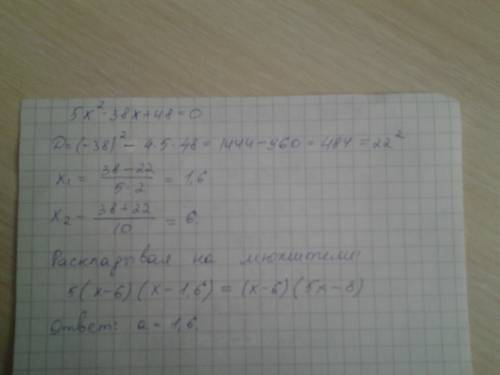 5x² - 38x + 48 = 0
D = (-38)² - 4·5·48 = 1444 - 960 = 484 = 22²
x₁ = (38 - 22)/(5·2) = 1,6
x₂ = (38 + 22)/10 = 6
Раскладывая на множители:
5(x-6)(x-1,6) = (x-6)(5x-8)
Ответ: a = 1,6.